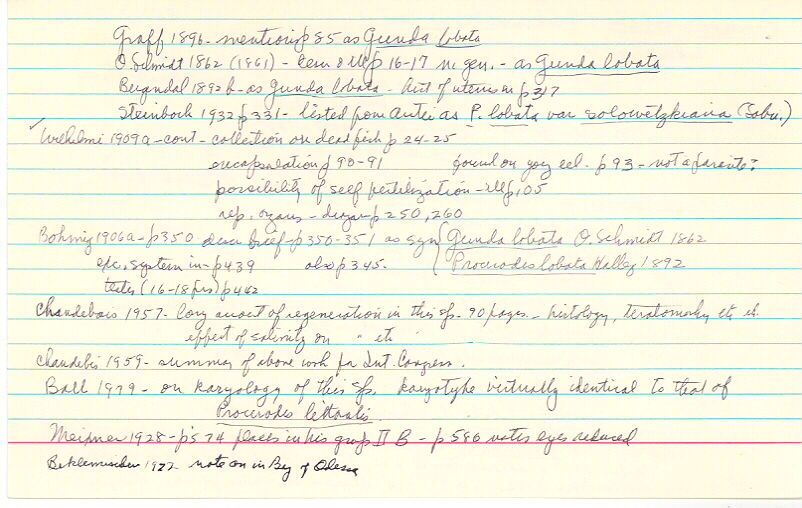 Graff 1896 - mentions p 85 as Gunda lobata
O. Schmidt 1862 (1861) - & ill p 16-17 n. gen. - as Gunda lobata
Bergendal 1892 b - as Gunda lobata - of uterus on p 317
Steinbock 1932 p 331 - listed from as P. lobata var solowetzkiana (Sabu.)
✓ Wilhelmi 1909a - cont - collection on dead fish p 24-25
encapsulation p 90-91 found on eel. p 93 - not a parasite?
possibility of self fertilization - ill p 105
rep. organs - p 250, 260
Bohmig 1906a - p 350 desc brief - p 350-351 as syn { Gunda lobata O. Schmidt 1862
exc. system in - p 439 also p 345. { Procerodes lobata Hallez 1892
testes (16-18 prs) p 462
Chandebois 1957 - long account of regeneration in this sp. 90 pages - histology, etc
effect of salinity on " etc
Chandebois 1959 - summary of above work for Int. Congress.
Ball 1979 - on karyology of this sp. karyotype virtually identical to that of
Procerodes littoralis.
Meixner 1928 - p 574 places in his group II B - p 586 notes eyes reduced
Beklemischev 1927 - note on in Bay of Odessa